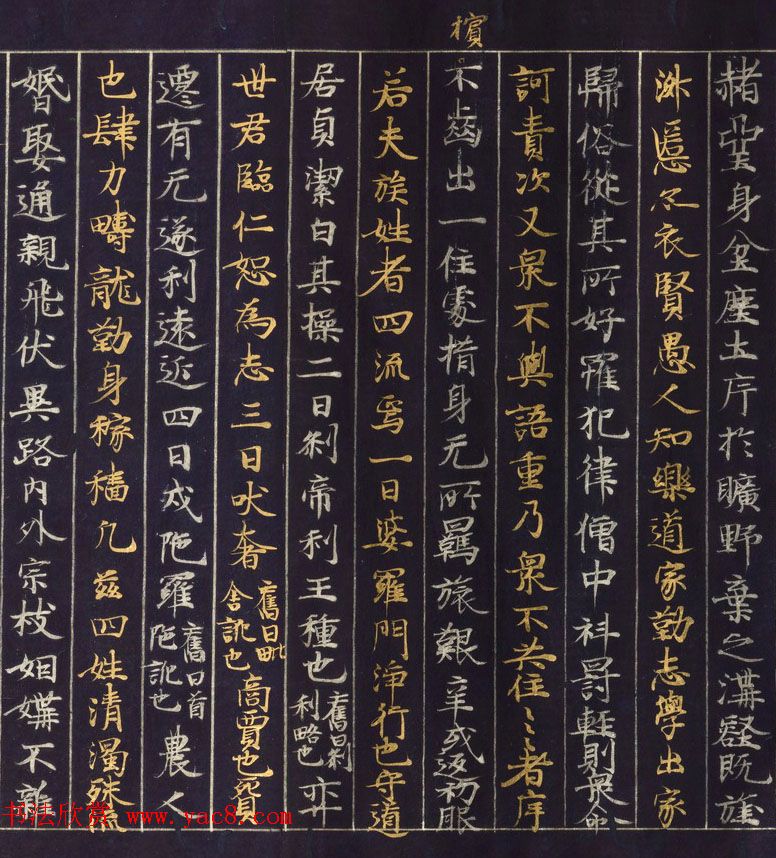 赭堊身坌塵土斥於曠野棄之溝壑既旌
淋慝尒衣賢愚人知樂道家勤志學出家
歸俗從其所好羅犯律僧中科罸輕則衆命
訶責次又衆不與語重乃衆不共住〻〻者斥
擯
不齒出一住處措身无所羈旅艱辛或返初服
若夫族姓者四流焉一曰婆羅門淨行也守道
居貞潔白其操二曰刹帝利王種也舊曰刹利略也弈
世君臨仁恕為志三曰吠奢舊曰毗舍訛也商賈也貿
遷有无逐利遠近四曰戍陁羅舊曰首陁訛也農人
也肆力疇龍勤身稼穡凢茲四姓清濁殊流
婚娶通親飛伏異路內外宗枝姻媾不雜
书法欣赏 www.yac8.com